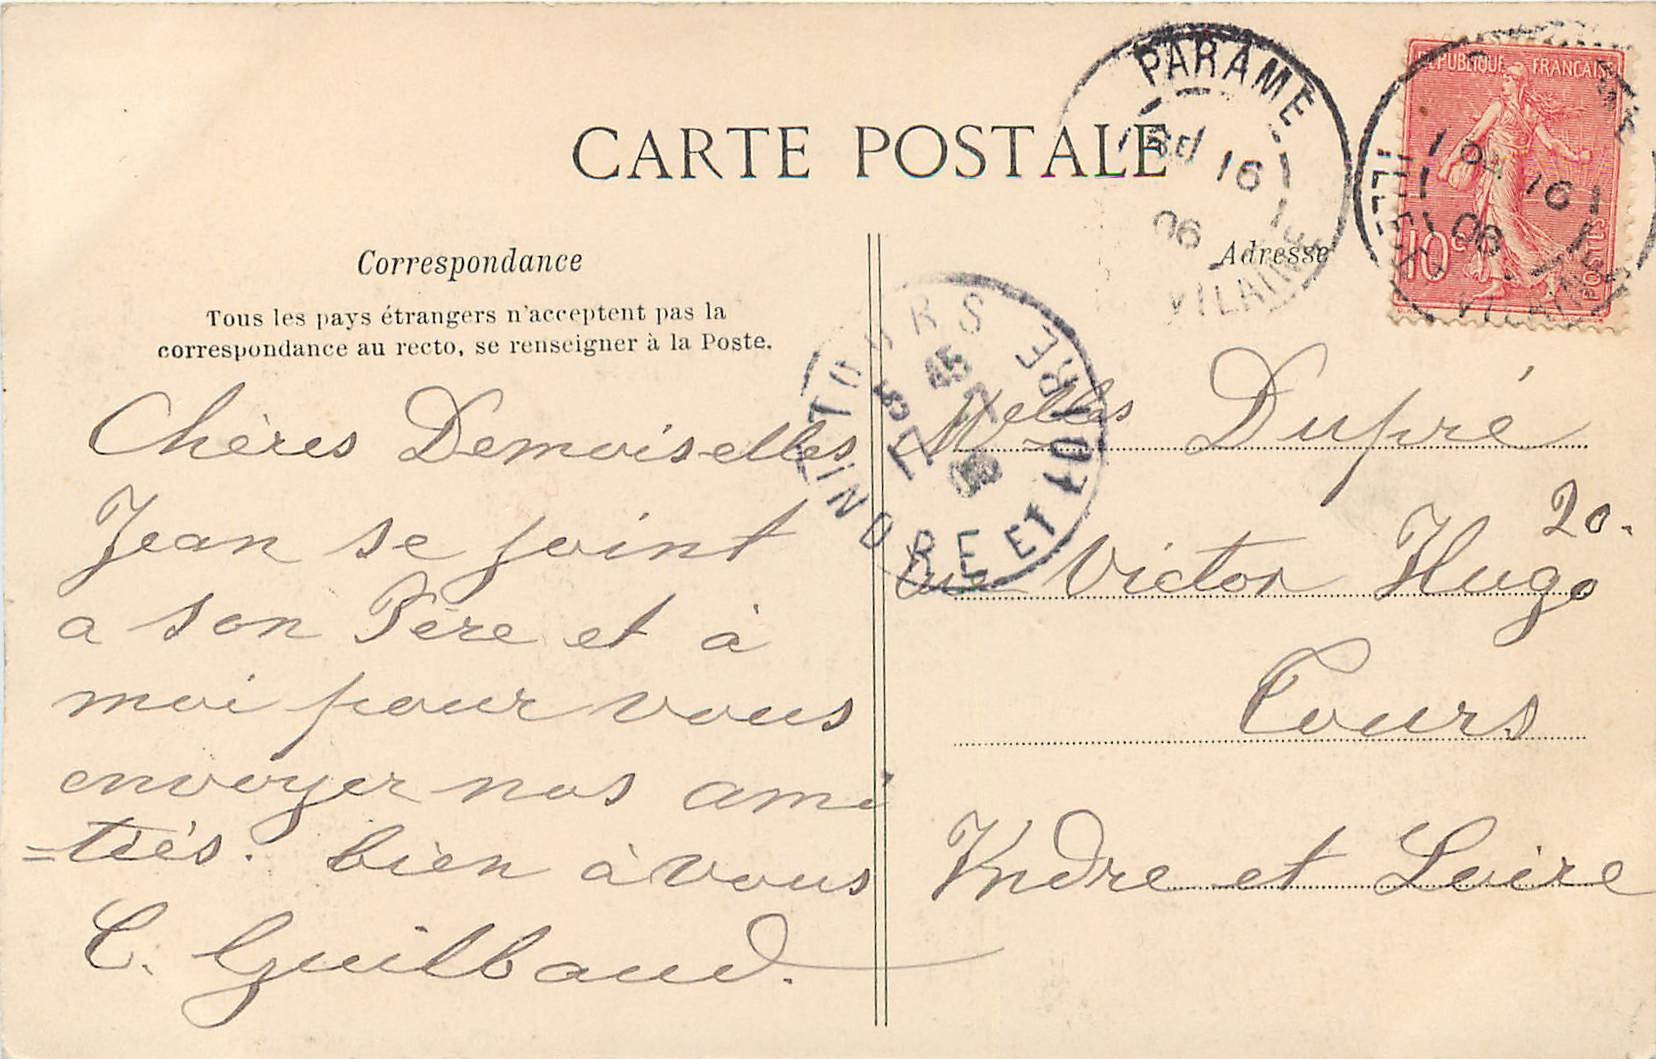 CARTE POSTALE
Correspondance
Tous les pays étrangers n'acceptent pas la
correspondance au recto, se renseigner à la Poste.
Chères Demoiselles
Jean se joint
a son Père et à
moi pour vous
envoyer nos ami
=tiés. bien à vous
C. Guilbaud.
Adresse
Melles Dupré
20.
rue Victor Hugo
Tours
Indre et Loire
PARAME
16
06
VILAINE
REPUBLIQUE FRANÇAISE
10c
POSTES
ILLE
16
06
VILAINE
TOURS
INDRE ET LOIRE